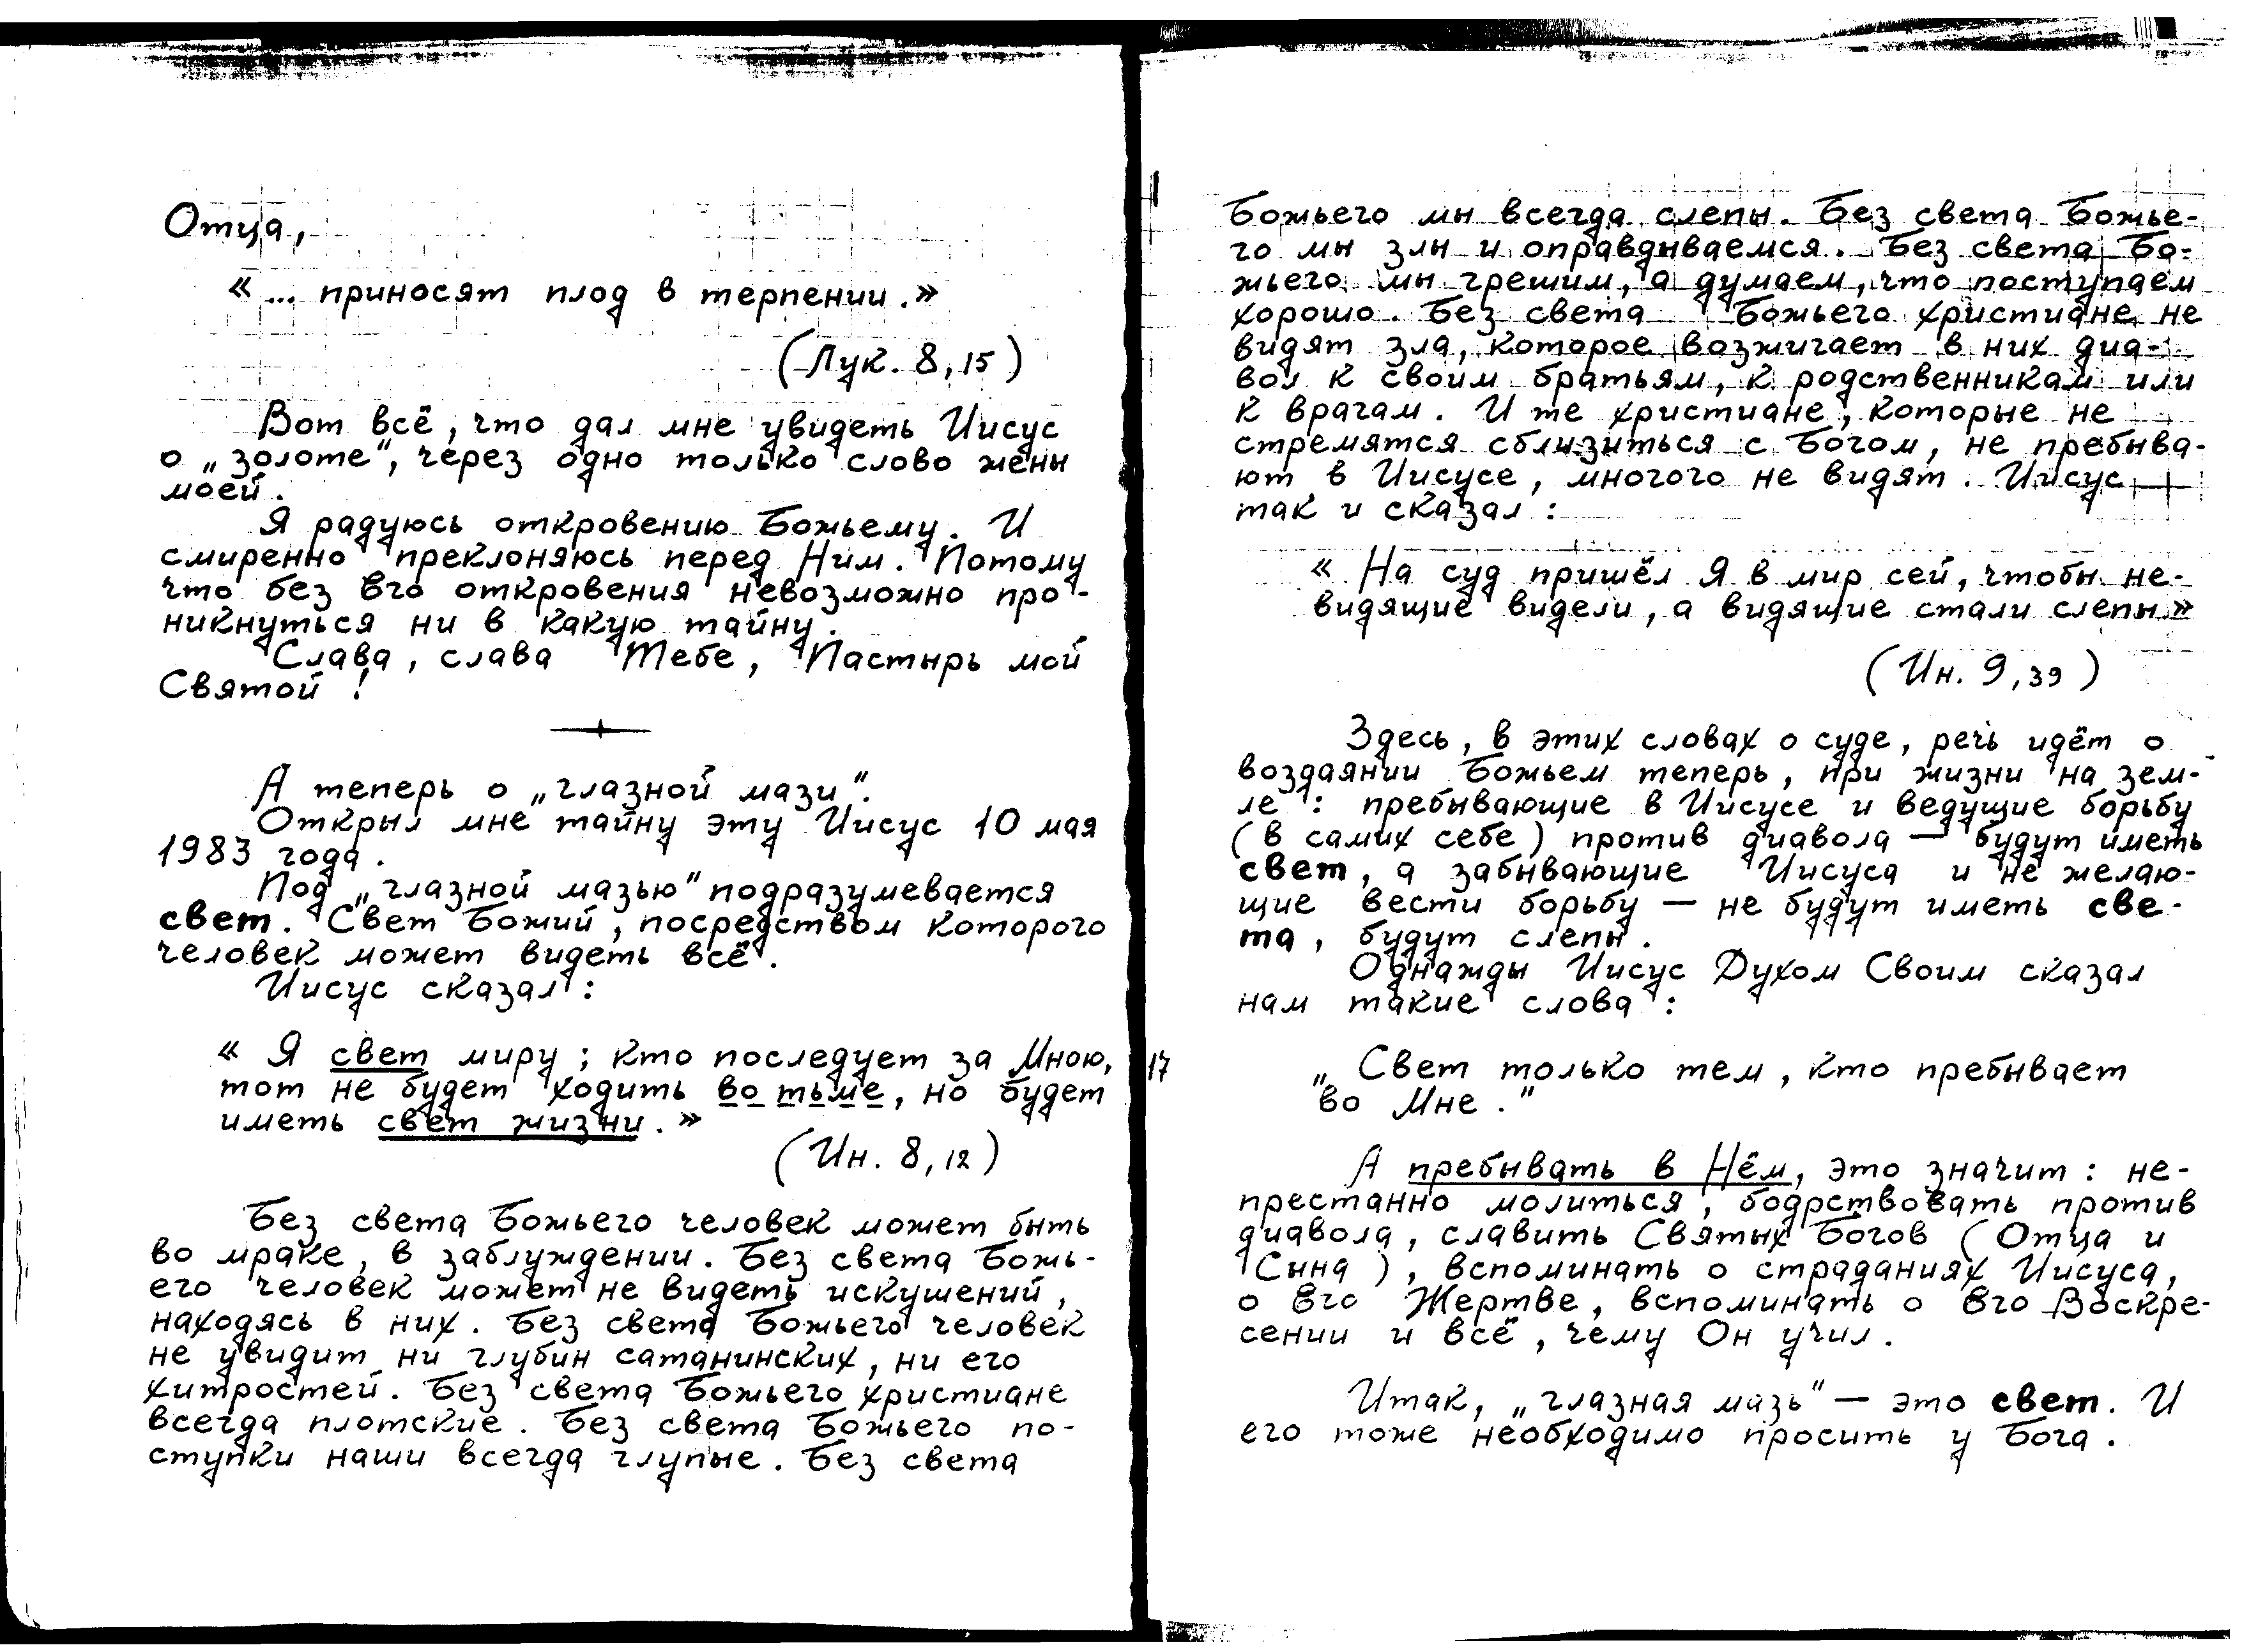 Отца,
«... приносят плод в терпении.»
(Лук. 8,15)
Вот всё, что дал мне увидеть Иисус
о „золоте“, через одно только слово жены
моей.
Я радуюсь откровению Божьему. И
смиренно преклоняюсь перед Ним. Потому
что без Его откровения невозможно про-
никнуться ни в какую тайну.
Слава, слава Тебе, Пастырь мой
Святой!
А теперь о „глазной мази“.
Открыл мне тайну эту Иисус 10 мая
1983 года.
Под „глазной мазью“ подразумевается
свет. Свет Божий, посредством которого
человек может видеть всё.
Иисус сказал:
« Я свет миру; кто последует за Мною,
тот не будет ходить во тьме, но будет
иметь свет жизни.»
(Ин. 8,12)
Без света Божьего человек может быть
во мраке, в заблуждении. Без света Божь-
его человек может не видеть искушений,
находясь в них. Без света Божьего человек
не увидит ни глубин сатанинских, ни его
хитростей. Без света Божьего христиане
всегда плотские. Без света Божьего по-
ступки наши всегда глупые. Без света
17
Божьего мы всегда слепы. Без света Божье-
го мы злы и оправдываемся. Без света Бо-
жьего мы грешим, а думаем, что поступаем
хорошо. Без света Божьего христиане не
видят зла, которое возжигает в них диа-
вол к своим братьям, к родственникам или
к врагам. И те христиане, которые не
стремятся сблизиться с Богом, не пребыва-
ют в Иисусе, многого не видят. Иисус
так и сказал:
« На суд пришёл Я в мир сей, чтобы не-
видящие видели, а видящие стали слепы»
(Ин. 9,39)
Здесь, в этих словах о суде, речь идёт о
воздаянии Божьем теперь, при жизни на зем-
ле: пребывающие в Иисусе и ведущие борьбу
(в самих себе) против диавола — будут иметь
свет, а забывающие Иисуса и не желаю-
щие вести борьбу — не будут иметь све-
та, будут слепы.
Однажды Иисус Духом Своим сказал
нам такие слова:
„Свет только тем, кто пребывает
во Мне.“
А пребывать в Нём, это значит: не-
престанно молиться, бодрствовать против
диавола, славить Святых Богов (Отца и
Сына), вспоминать о страданиях Иисуса,
о Его Жертве, вспоминать о Его Воскре-
сении и всё, чему Он учил.
Итак, „глазная мазь“ — это свет. И
его тоже необходимо просить у Бога.